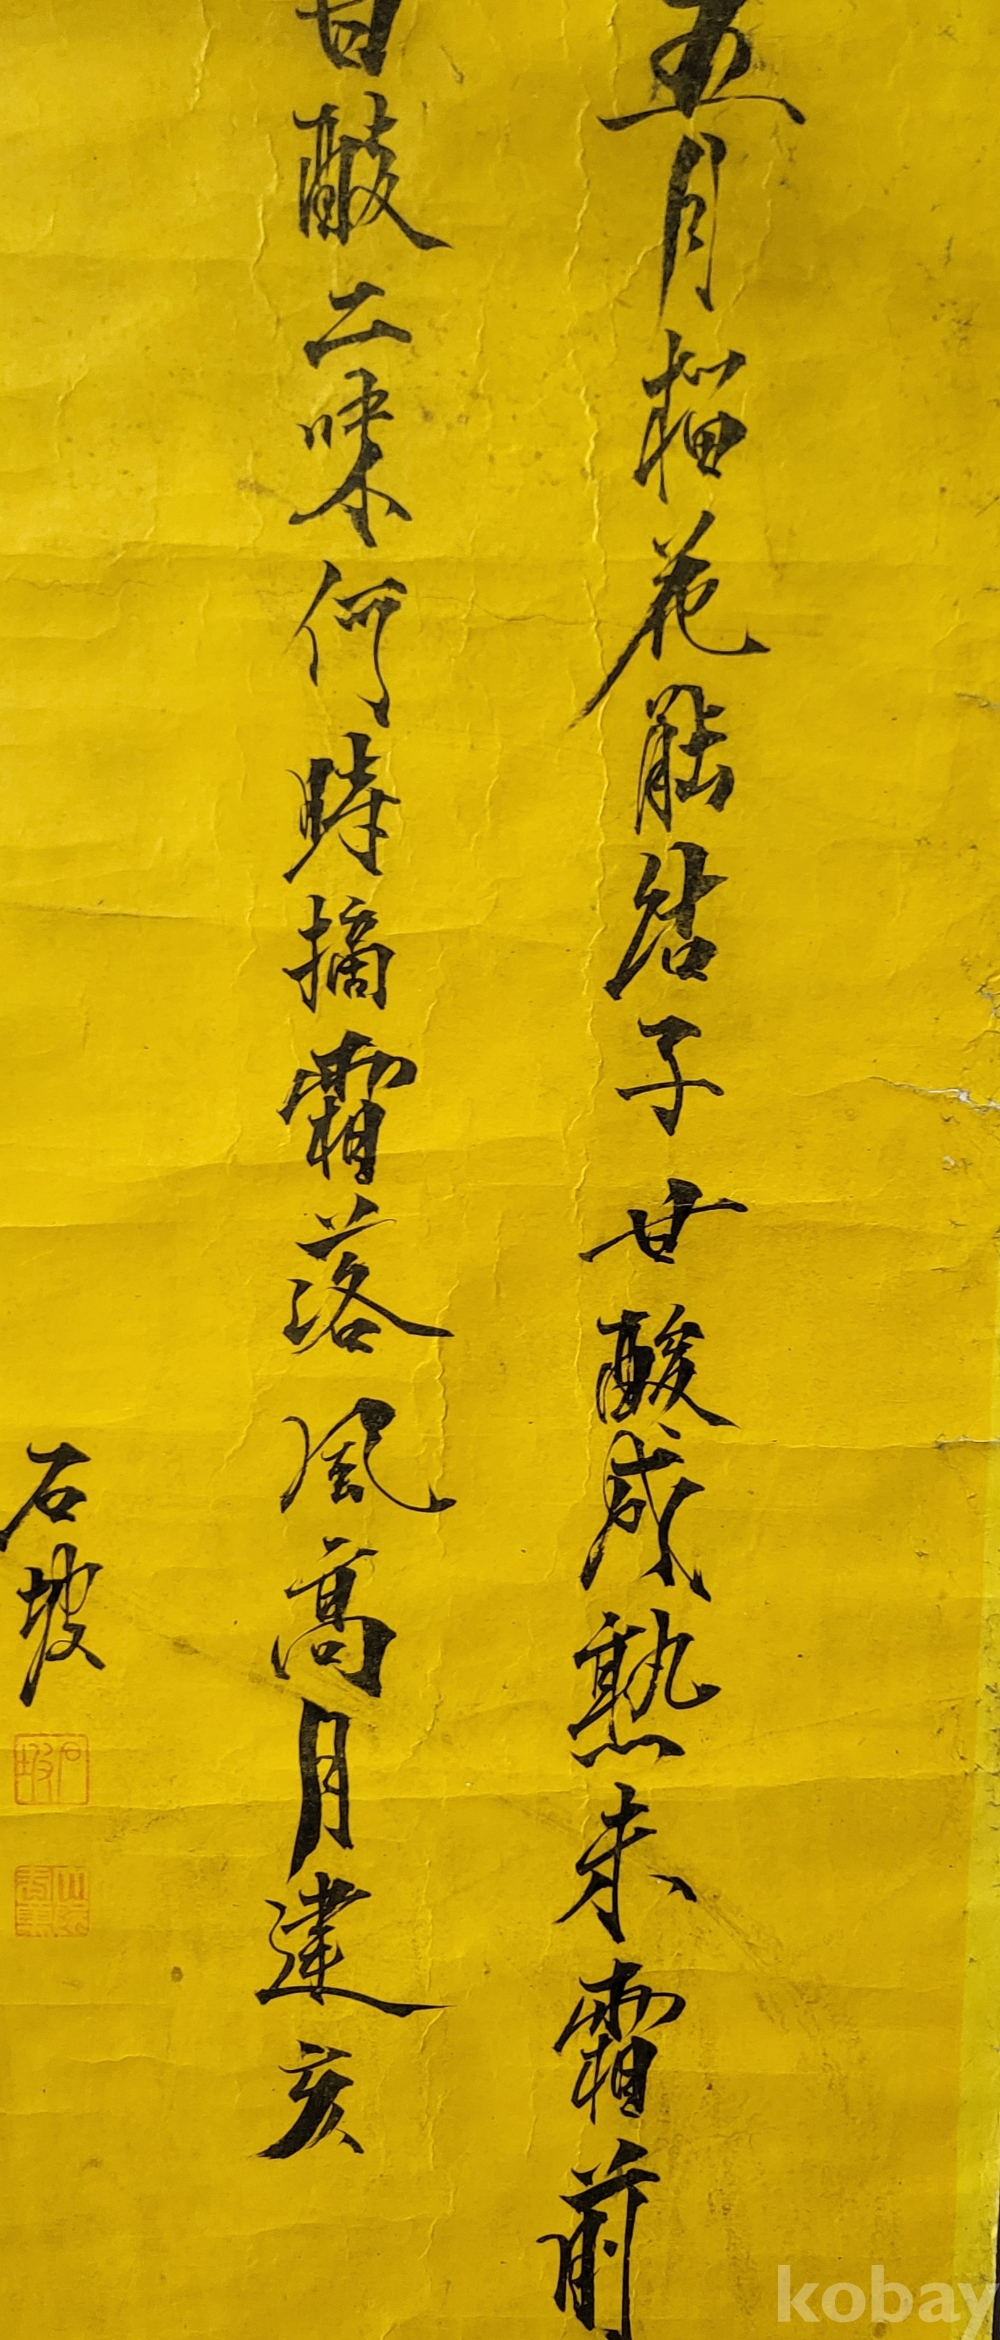 五月榴花能結子甘酸咸熟未霜前
甘酸二味何時摘霜落風高月建亥
石坡
石坡
kobay